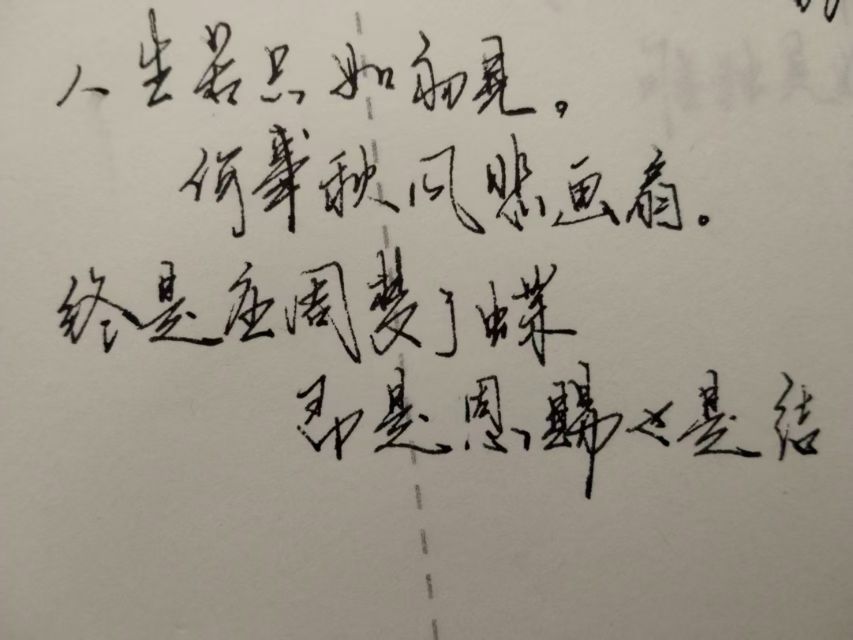 人生若只如初见。
何事秋风悲画扇。
终是庄周梦了蝶
即是恩赐也是结